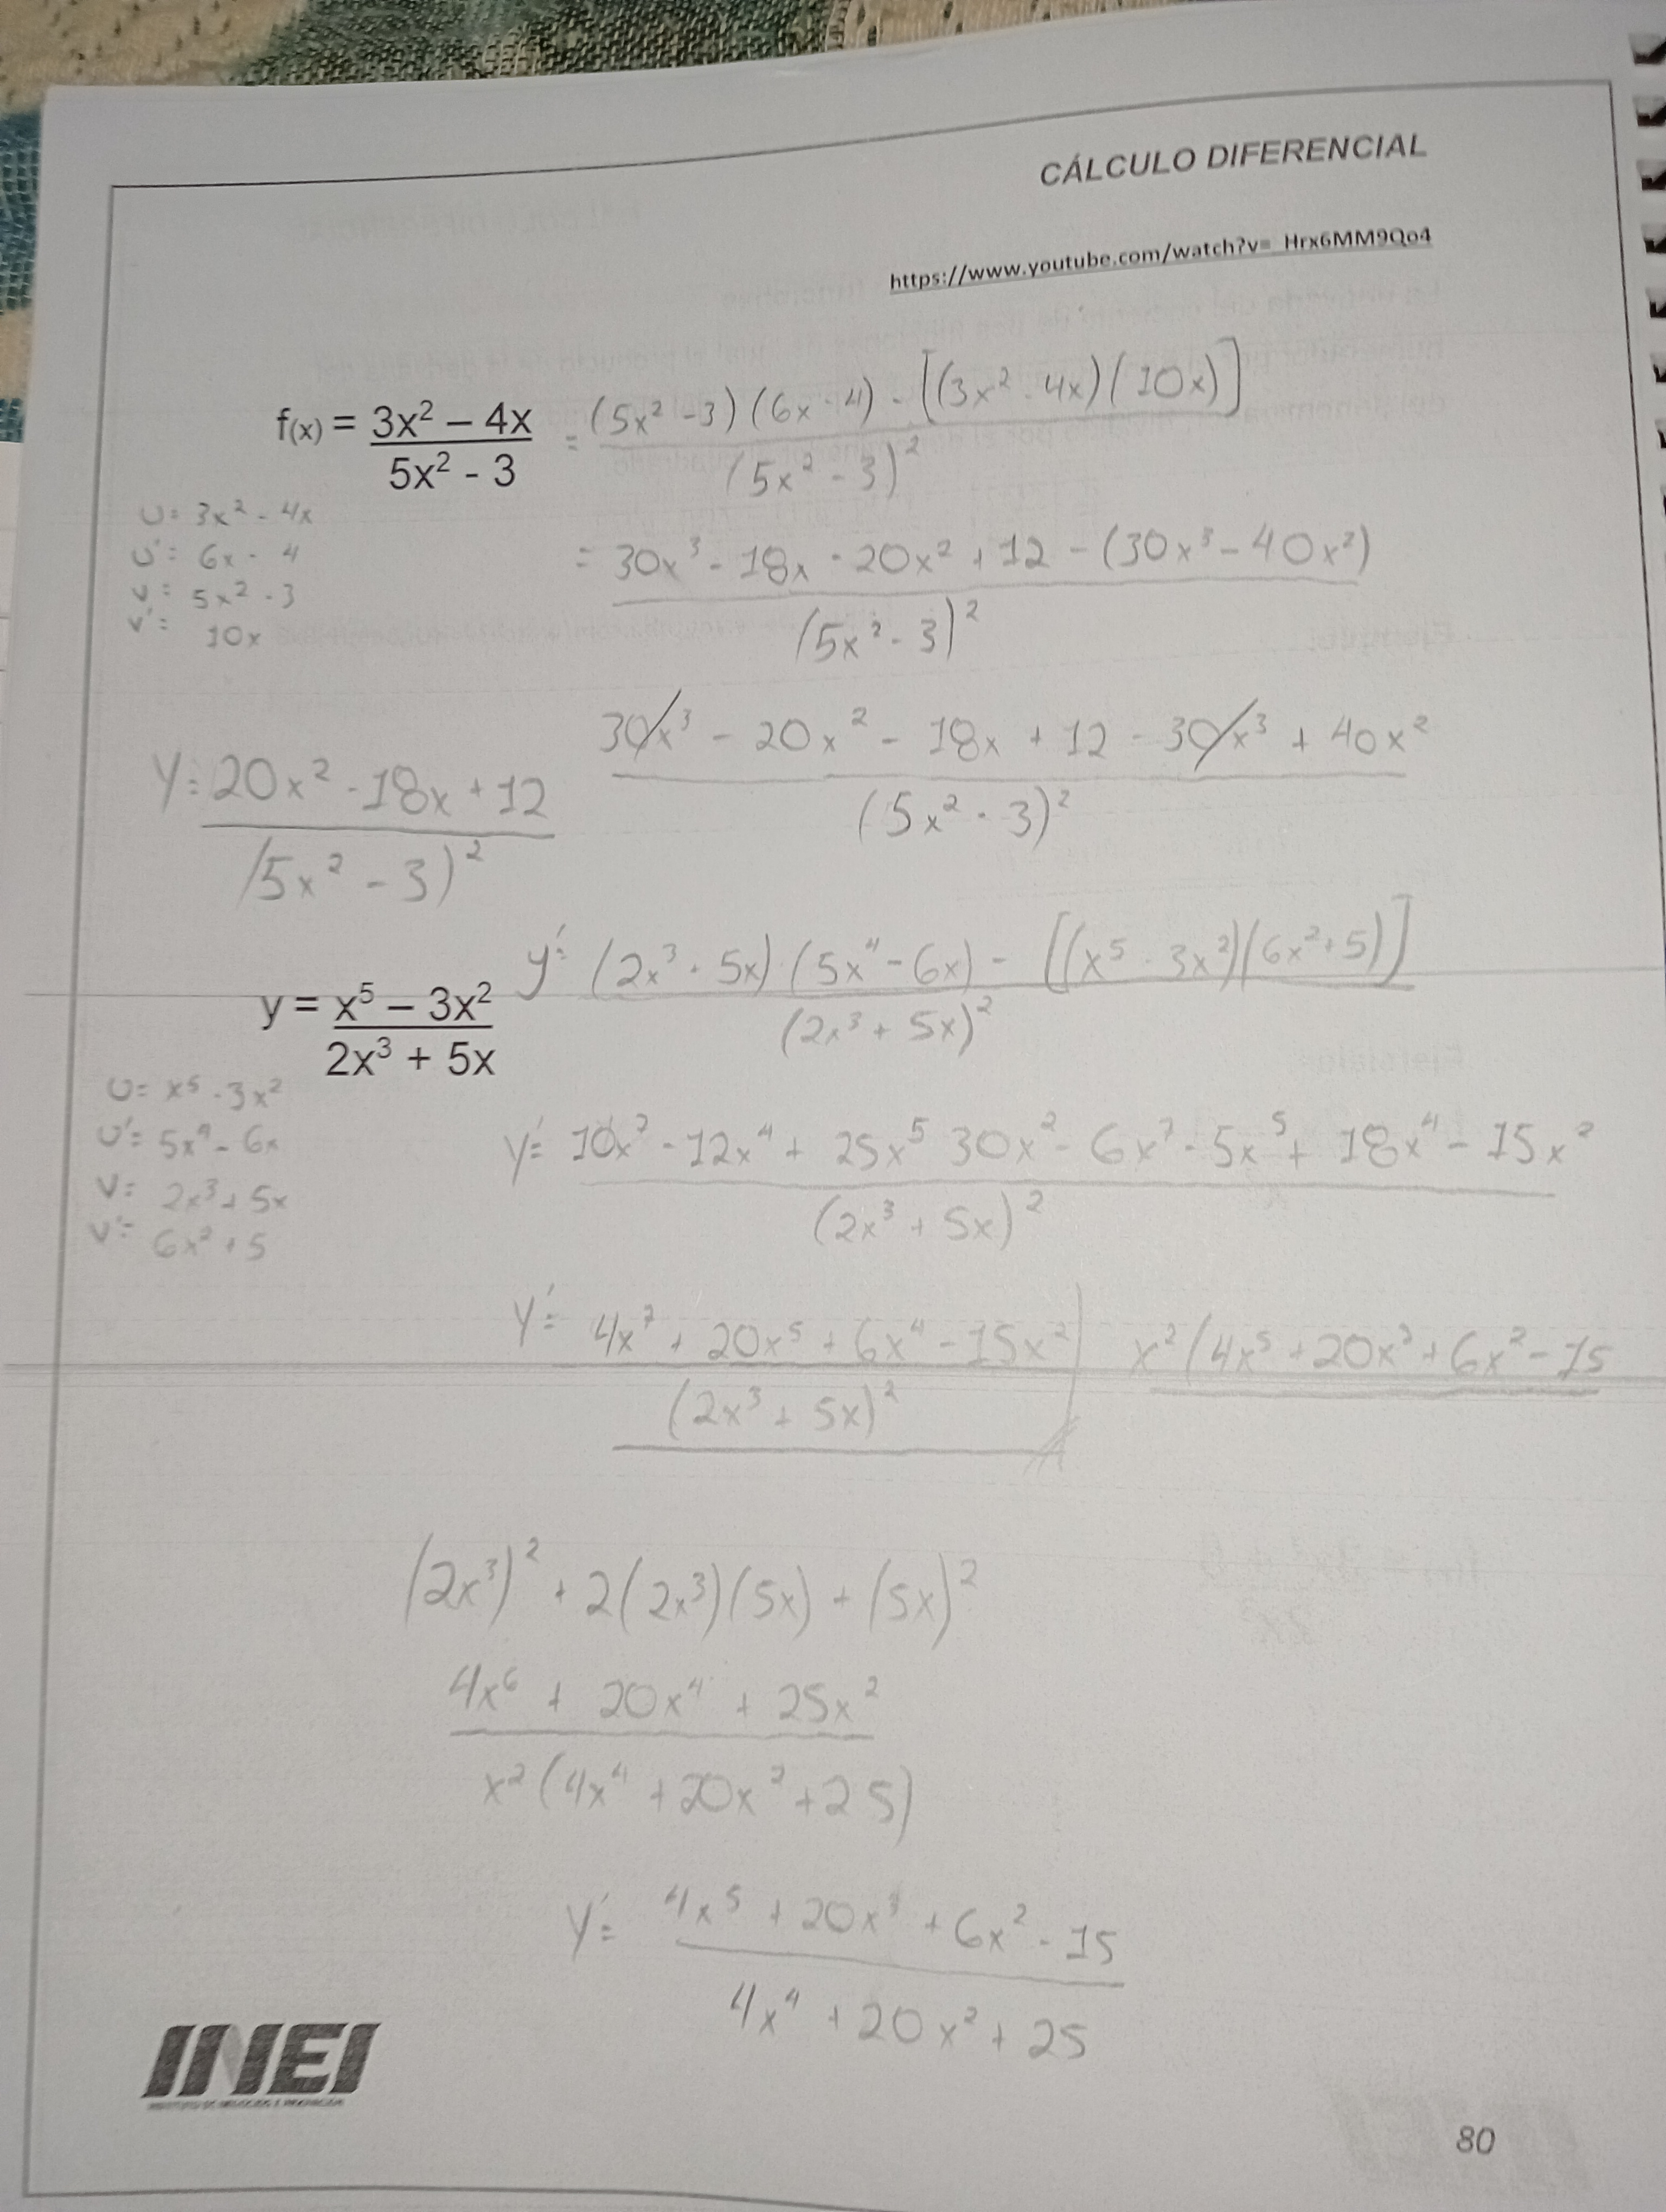 CÁLCULO DIFERENCIAL
https://www.youtube.com/watch?v=_Hrx6MM9Qo4
f(x) = 3x² – 4x / 5x² - 3 = (5x² - 3)(6x - 4) - [(3x² - 4x)(10x)] / (5x² - 3)²
U= 3x² - 4x
U'= 6x - 4
V= 5x² - 3
V'= 10x
= 30x³ - 18x - 20x² + 12 - (30x³ - 40x²) / (5x² - 3)²
30x³ - 20x² - 18x + 12 - 30x³ + 40x² / (5x² - 3)²
Y= 20x² - 18x + 12 / (5x² - 3)²
y = x⁵ – 3x² / 2x³ + 5x
y'= (2x³ + 5x)(5x⁴ - 6x) - [(x⁵ - 3x²)(6x² + 5)] / (2x³ + 5x)²
U= x⁵ - 3x²
U'= 5x⁴ - 6x
V= 2x³ + 5x
V'= 6x² + 5
Y'= 10x⁷ - 12x⁴ + 25x⁵ 30x² - 6x⁷ - 5x⁵ + 18x⁴ - 15x² / (2x³ + 5x)²
Y'= 4x⁷ + 20x⁵ + 6x⁴ - 15x² / (2x³ + 5x)²
x²(4x⁵ + 20x³ + 6x² - 15
(2x³)² + 2(2x³)(5x) + (5x)²
4x⁶ + 20x⁴ + 25x²
x²(4x⁴ + 20x² + 25)
Y'= 4x⁵ + 20x³ + 6x² - 15 / 4x⁴ + 20x² + 25
INEI
80